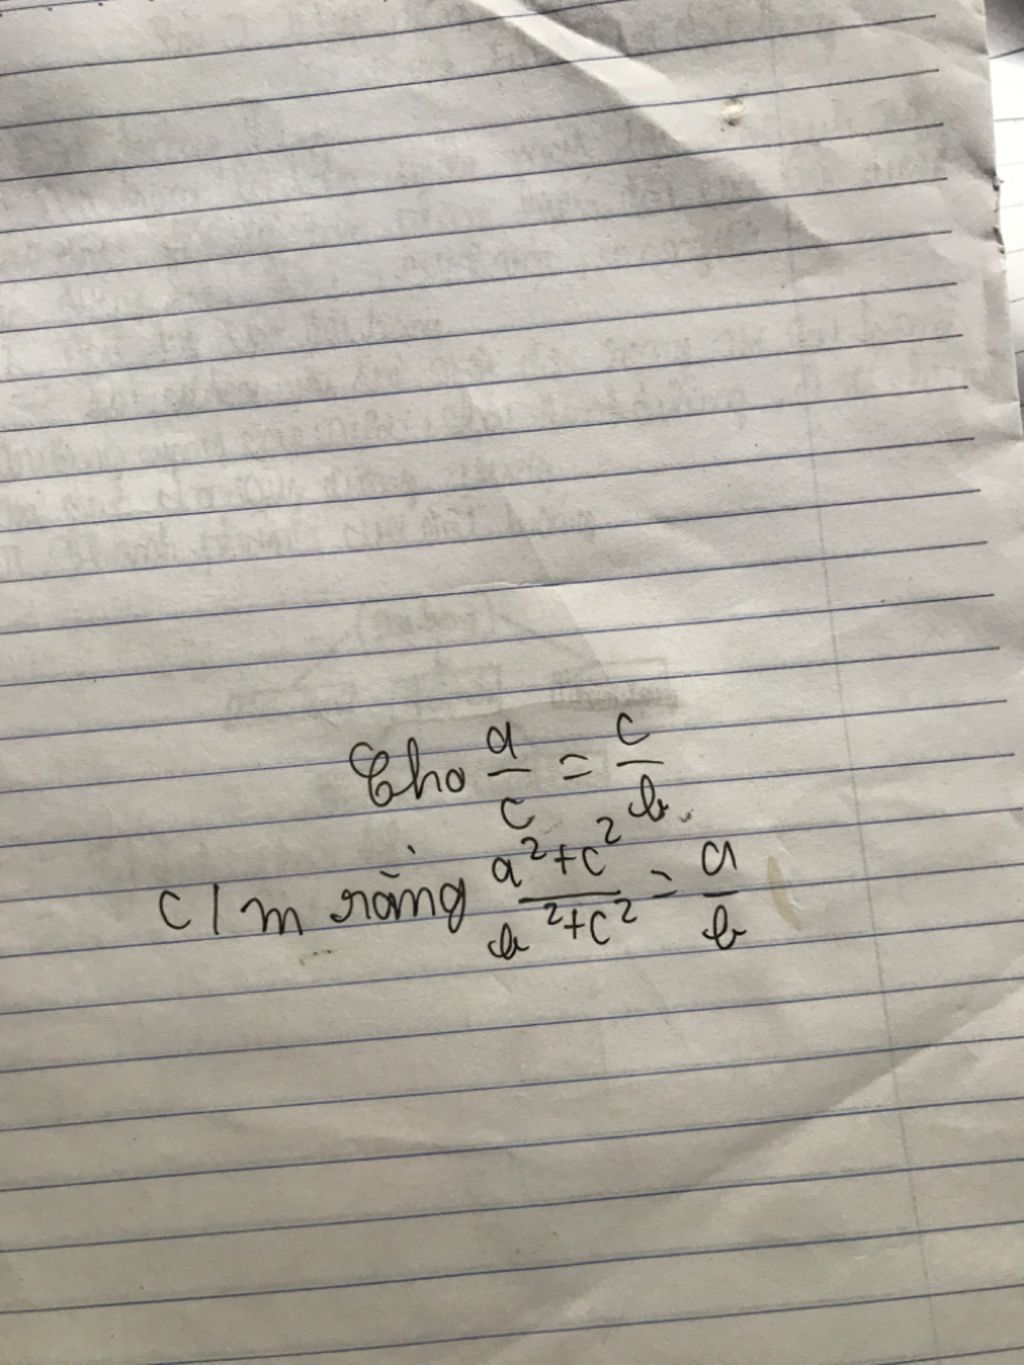 Cho a/c = c/b.
C/m rằng (a²+c²)/(b²+c²) = a/b